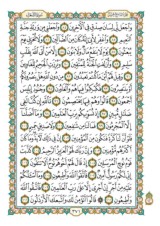 وَاجْعَل لِّي لِسَانَ صِدْقٍ فِي الْآخِرِينَ وَاجْعَلْنِي مِن وَرَثَةِ جَنَّةِ
النَّعِيمِ وَاغْفِرْ لِأَبِي إِنَّهُ كَانَ مِنَ الضَّالِّينَ وَلَا تُخْزِنِي يَوْمَ
يُبْعَثُونَ يَوْمَ لَا يَنفَعُ مَالٌ وَلَا بَنُونَ إِلَّا مَنْ أَتَى اللَّهَ بِقَلْبٍ
سَلِيمٍ وَأُزْلِفَتِ الْجَنَّةُ لِلْمُتَّقِينَ وَبُرِّزَتِ الْجَحِيمُ لِلْغَاوِينَ
وَقِيلَ لَهُمْ أَيْنَ مَا كُنتُمْ تَعْبُدُونَ مِن دُونِ اللَّهِ هَلْ يَنصُرُونَكُمْ
أَوْ يَنتَصِرُونَ فَكُبْكِبُوا فِيهَا هُمْ وَالْغَاوُونَ وَجُنُودُ إِبْلِيسَ
أَجْمَعُونَ قَالُوا وَهُمْ فِيهَا يَخْتَصِمُونَ تَاللَّهِ إِن كُنَّا لَفِي
ضَلَالٍ مُّبِينٍ إِذْ نُسَوِّيكُم بِرَبِّ الْعَالَمِينَ وَمَا أَضَلَّنَا إِلَّا
الْمُجْرِمُونَ فَمَا لَنَا مِن شَافِعِينَ وَلَا صَدِيقٍ حَمِيمٍ فَلَوْ أَنَّ
لَنَا كَرَّةً فَنَكُونَ مِنَ الْمُؤْمِنِينَ إِنَّ فِي ذَلِكَ لَآيَةً وَمَا كَانَ
أَكْثَرُهُم مُّؤْمِنِينَ وَإِنَّ رَبَّكَ لَهُوَ الْعَزِيزُ الرَّحِيمُ كَذَّبَتْ
قَوْمُ نُوحٍ الْمُرْسَلِينَ إِذْ قَالَ لَهُمْ أَخُوهُمْ نُوحٌ أَلَا تَتَّقُونَ
إِنِّي لَكُمْ رَسُولٌ أَمِينٌ فَاتَّقُوا اللَّهَ وَأَطِيعُونِ وَمَا أَسْأَلُكُمْ
عَلَيْهِ مِنْ أَجْرٍ إِنْ أَجْرِيَ إِلَّا عَلَى رَبِّ الْعَالَمِينَ فَاتَّقُوا
اللَّهَ وَأَطِيعُونِ قَالُوا أَنُؤْمِنُ لَكَ وَاتَّبَعَكَ الْأَرْذَلُونَ
٣٧١